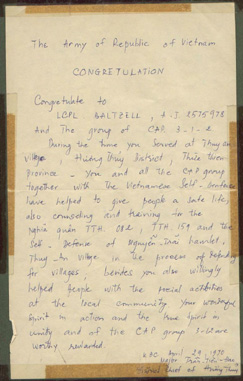 The Army of Republic of Vietnam
CONGRETULATION
Congretulate to
LCPL BALTZELL, A.J. 2575978
And The group of CAP 3-1-2
During the time you served at Thuy
village, Huong Thuy District, Thua Thien
Province - You and all the CAP group
together with the Vietnamese Self-
have helped to give people a safe life,
also counseling and training to the
nghia quân TTH. 082, TTH. 159 and the
Self-Defense of Nguyen hamlet,
Thuy village in the process of Defending
for villages; besides you also willingly
helped people with the social activities
at the local community Your wonderful
spirit in action and the true spirit in
unity and of the CAP group to-be are
worthy rewarded.
April 29, 1970
Major
District Chief of Huong Thuy